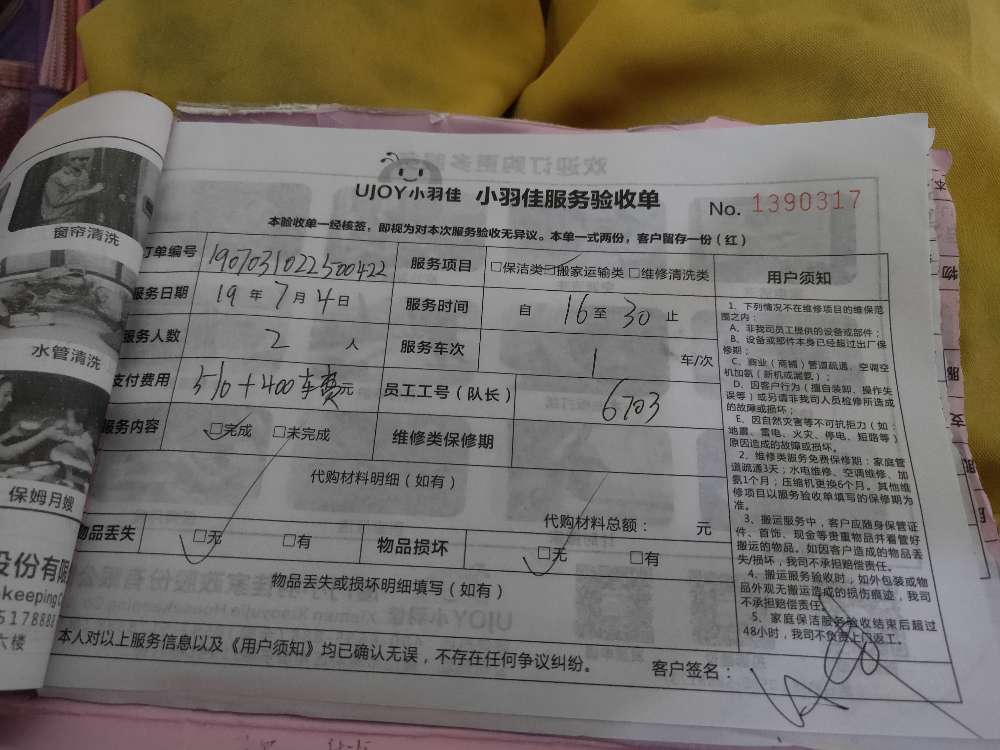 欢迎订购更多服
UJOY小羽佳 小羽佳服务验收单 No. 1390317
本验收单一经核签，即视为对本次服务验收无异议。本单一式两份，客户留存一份（红）
订单编号 190703102250422 服务项目 □保洁类 □搬家运输类 □维修清洗类 用户须知
服务日期 19 年 7 月 4 日 服务时间 自 16 至 30 止
服务人数 2 人 服务车次 1 车/次
支付费用 510+400车费元 员工工号（队长） 6703
服务内容 □完成 □未完成 维修类保修期
代购材料明细（如有）
代购材料总额： 元
物品丢失 □无 □有 物品损坏 □无 □有
物品丢失或损坏明细填写（如有）
本人对以上服务信息以及《用户须知》均已确认无误，不存在任何争议纠纷。
客户签名：
1、下列情况不在维修项目的维保范
围之内：
A、非我司员工提供的设备或部件；
B、设备或部件本身已经超过出厂保
修期；
C、商业（商铺）管道疏通、空调空
机加氨（新机或漏氨）；
D、因客户行为（擅自装卸、操作失
误等）或另请非我司人员检修所造成
的故障或损坏；
E、因自然灾害等不可抗拒力（如：
地震、雷电、火灾、停电、短路等）
原因造成的故障或损坏。
2、维修类服务免费保修期：家庭管
道疏通3天；水电维修、空调维修、加
氨1个月；压缩机更换6个月。其他维
修项目以服务验收单填写的保修期为
准。
3、搬运服务中，客户应随身保管证
件、首饰、现金等贵重物品并看管好
搬运的物品。如因客户造成的物品丢
失/损坏，我司不承担赔偿责任。
4、搬运服务验收时，如外包装或物
品外观无搬运造成的损伤痕迹，我司
不承担赔偿责任。
5、家庭保洁服务验收结束后超过
48小时，我司不负责上门返工。
窗帘清洗
水管清洗
保姆月嫂
股份有限
keeping C
5178888
六楼